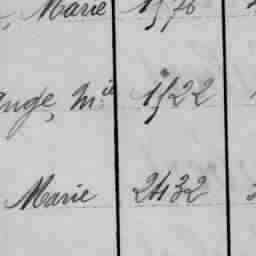 Marie 1576
Ange, Mie 1522
Marie 2432